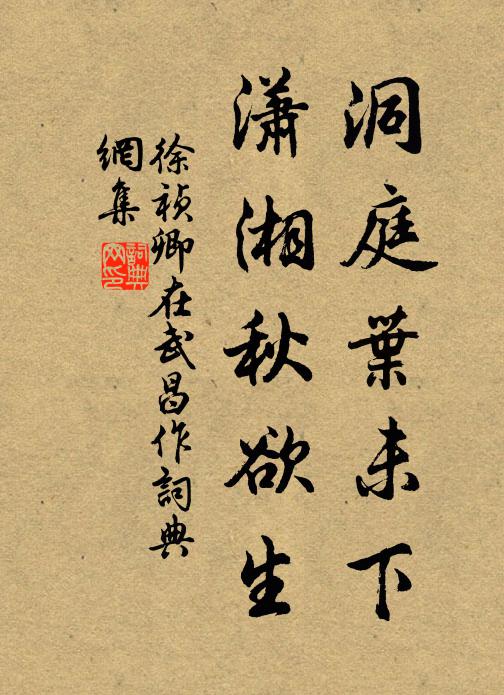 洞庭葉未下
瀟湘秋欲生
徐禎卿在武昌作詞典
網集
詞典
网印